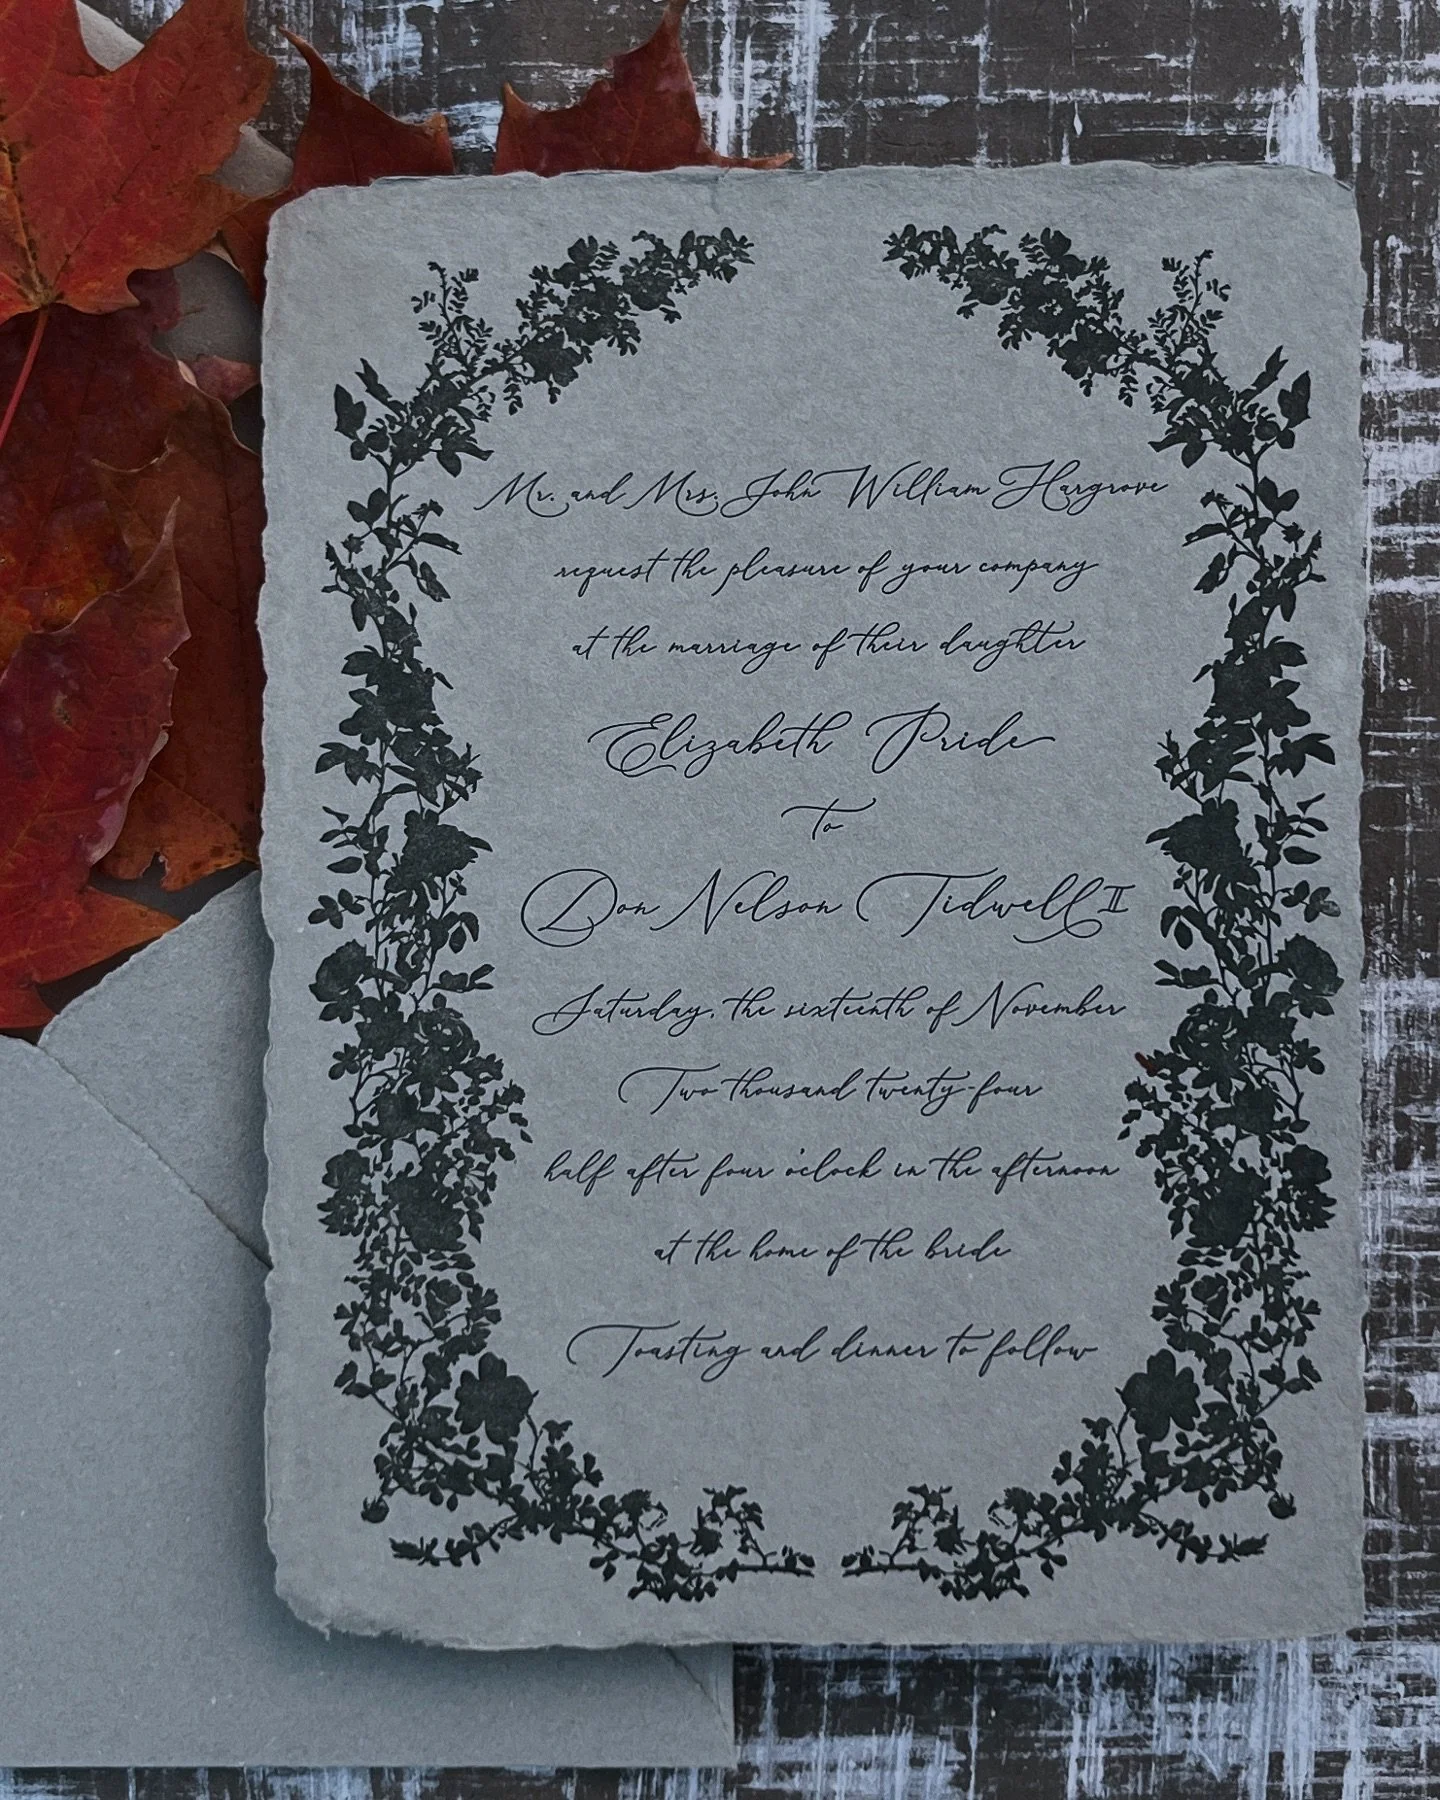 Mr. and Mrs. John William Hargrove
request the pleasure of your company
at the marriage of their daughter
Elizabeth Pride
to
Don Nelson Tidwell II
Saturday, the sixteenth of November
Two thousand twenty-four
half after four o'clock in the afternoon
at the home of the bride
Toasting and dinner to follow